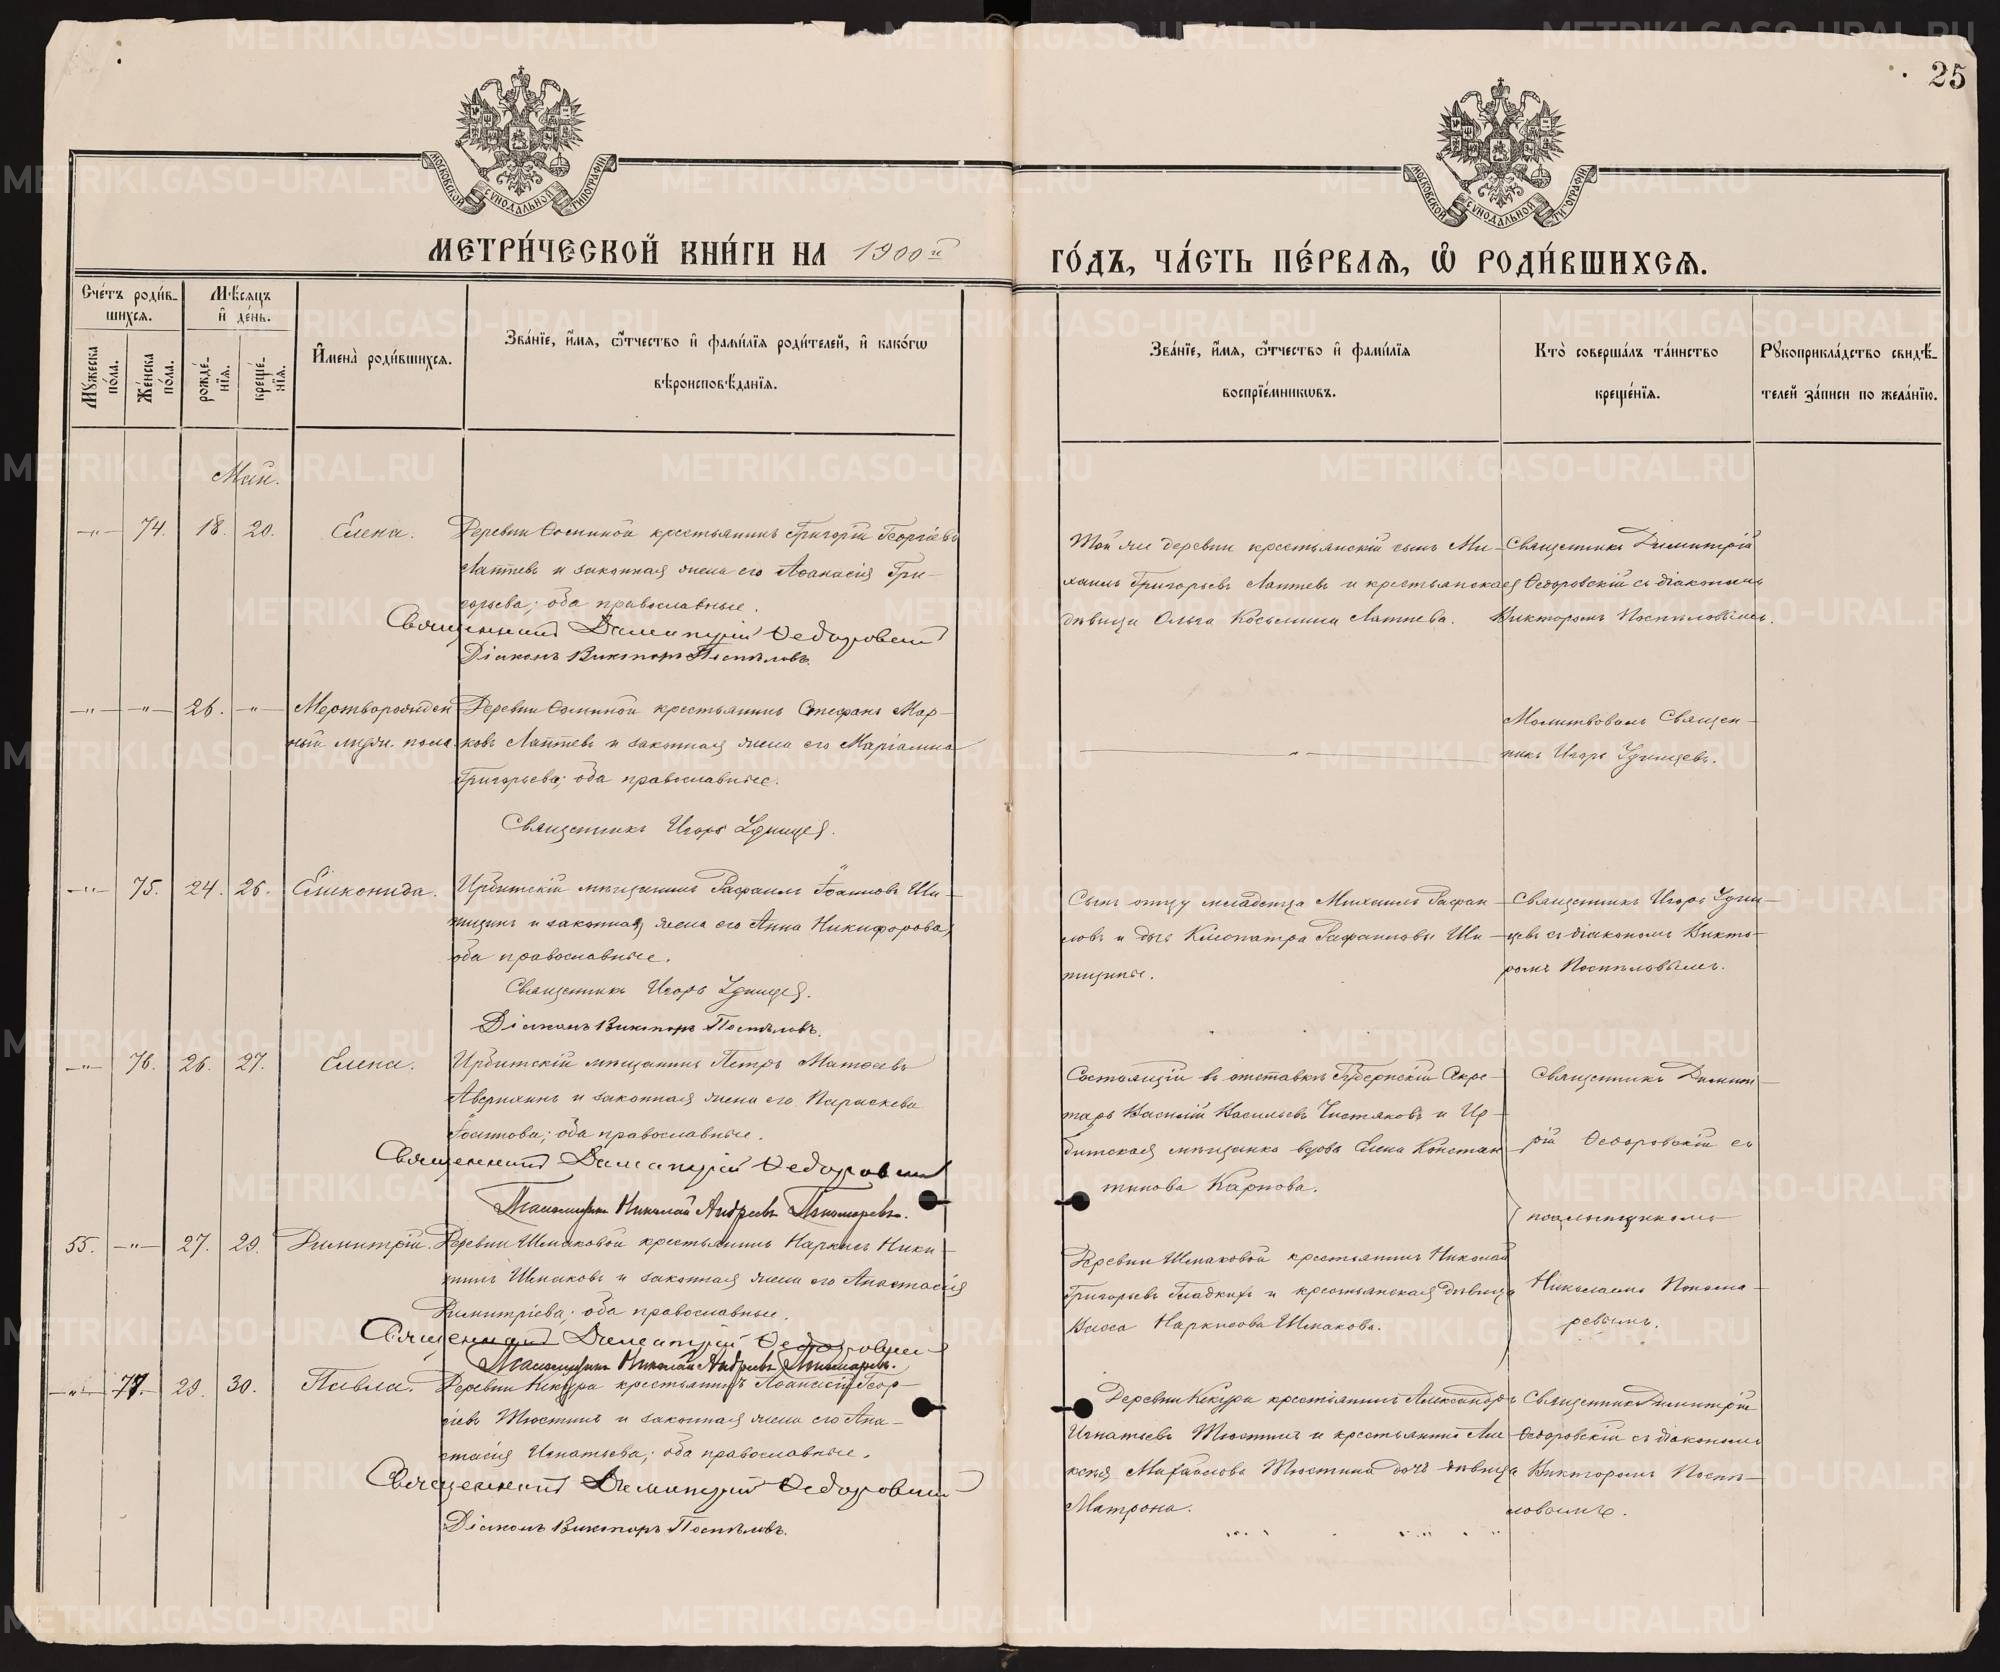 25
МОСКОВСКОЙ СѴНОДАЛЬНОЙ ТИПОГРАФІИ
МОСКОВСКОЙ СѴНОДАЛЬНОЙ ТИПОГРАФІИ
МЕТРИ́ЧЕСКОЙ КНИ́ГИ НА 1900й
ГО́ДЪ, ЧА́СТЬ ПЕ́РВАѦ, Ѡ РОДИ́ВШИХСѦ.
Сче́тъ роди́в-
шихсѧ.
Мꙋжеска по́ла.
Же́нска по́ла.
Мѣсѧцъ
и҆ де́нь.
рожде́-нїѧ.
креще́-нїѧ.
И҆мена̀ роди́вшихсѧ.
Зва́нїе, и҆́мѧ, ѻ҆́тчество и҆ фами́лїѧ роди́телей, и҆ како́гѡ
вѣроисповѣ́данїѧ.
Зва́нїе, и҆́мѧ, ѻ҆́тчество и҆ фами́лїѧ
воспрїе́мникѡвъ.
Кто̀ соверша́лъ та́инство
креще́нїѧ.
Рꙋкоприкла́дство свидѣ́-
телей за́писи по жела́нїю.
Май.
—"— 74. 18. 20. Елена.
Деревни Ѳоминой крестьянинъ Григорій Георгіевъ
Лаптевъ и законная жена его Аѳанасія Гри-
горьева; оба православные.
Священникъ Димитрій Ѳедоровскій
Діаконъ Викторъ Поспѣловъ.
Той же деревни крестьянскій сынъ Ми-
хаилъ Григорьевъ Лаптевъ и крестьянская
дѣвица Ольга Косьмина Лаптева.
Священникъ Димитрій
Ѳедоровскій съ діакономъ
Викторомъ Поспѣловымъ.
—"— —"— 26. —"— Мертворожден
ный муж. пола
Деревни Ѳоминой крестьянинъ Стефанъ Мар-
ковъ Лаптевъ и законная жена его Маріамна
Григорьева; оба православные.
Священникъ Игорь Удинцев.
—"—
Молитвовалъ Священ-
никъ Игорь Удинцевъ.
—"— 75. 24. 26. Еликонида.
Ирбитскій мѣщанинъ Рафаилъ Іоанновъ Ши-
пицинъ и законная жена его Анна Никифорова;
оба православные.
Священникъ Игорь Удинцев.
Діаконъ Викторъ Поспѣловъ.
Сынъ отцу младенца Михаилъ Рафаи-
ловъ и дочь Клеопатра Рафаиловы Ши-
пицины.
Священникъ Игорь Удин-
цевъ съ діакономъ Викто-
ромъ Поспѣловымъ.
—"— 76. 26. 27. Елена.
Ирбитскій мѣщанинъ Петръ Матѳеевъ
Аверкинъ и законная жена его Параскева
Іоаннова; оба православные.
Священникъ Димитрій Ѳедоровскій
Псаломщикъ Николай Андреевъ Пономаревъ.
Состоящій въ отставкѣ Губернскій Секре-
тарь Василій Васильевъ Чистяковъ и Ир-
битская мѣщанка вдова Елена Констан
тинова Карпова.
Священникъ Димит-
рій Ѳедоровскій съ
псаломщикомъ
Николаемъ Понома-
ревымъ.
55. —"— 27. 29. Димитрій.
Деревни Шмаковой крестьянинъ Наркисъ Ники-
тинъ Шмаковъ и законная жена его Анастасія
Димитріева; оба православные.
Священникъ Димитрій Ѳедоровскій
Псаломщикъ Николай Андреевъ Пономаревъ.
Деревни Шмаковой крестьянинъ Николай
Григорьевъ Гладкихъ и крестьянская дѣвица
Васса Наркисова Шмакова.
—"— 77. 29. 30. Павла.
Деревни Кекура крестьянинъ Аѳанасій Геор-
гіевъ Тюстинъ и законная жена его Ана-
стасія Игнатьева; оба православные.
Священникъ Димитрій Ѳедоровскій
Діаконъ Викторъ Поспѣловъ.
Деревни Кекура крестьянинъ Александръ
Игнатьевъ Тюстинъ и крестьянина Але
ксѣя Михайлова Тюстина дочь дѣвица
Матрона.
Священникъ Димитрій
Ѳедоровскій съ діакономъ
Викторомъ Поспѣ-
ловымъ.
METRIKI.GASO-URAL.RU